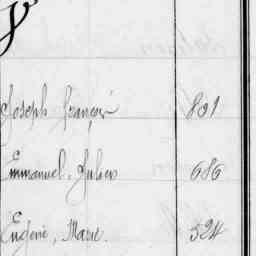 V
Joseph François 801
Emmanuel, Julien 686
Eugène, Marie. 524